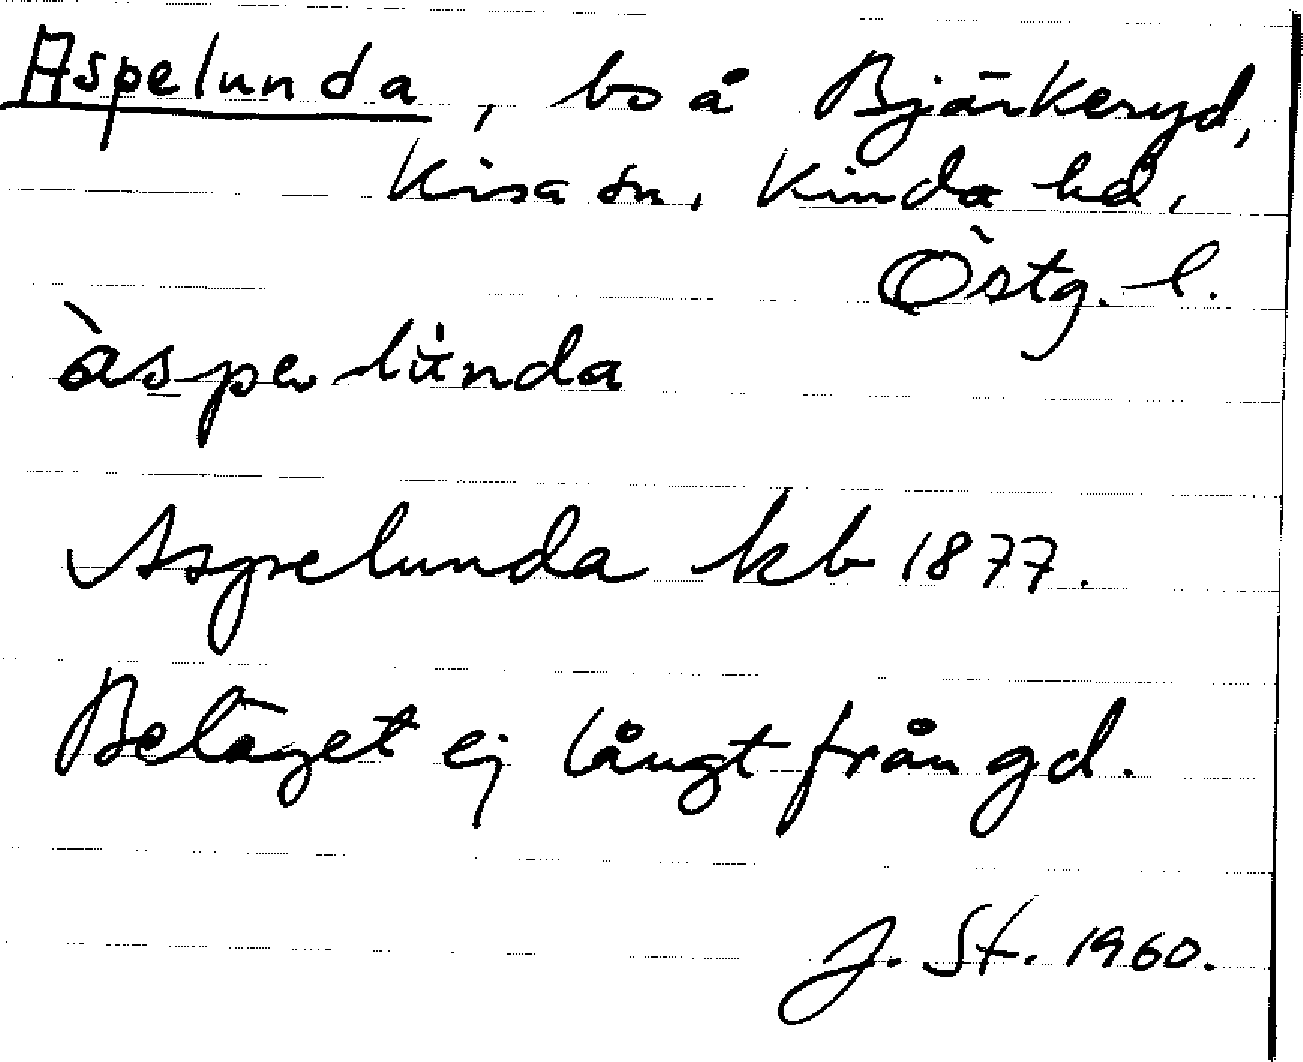 Aspelunda, bs å Bjärkeryd,
Kisa sn, Kinda hd,
Östg. l.
àspelu̇nda
Aspelunda kb 1877.
Beläget ej långt från gd.
J. St. 1960.